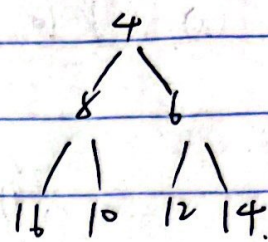 4
8 6
16 10 12 14.